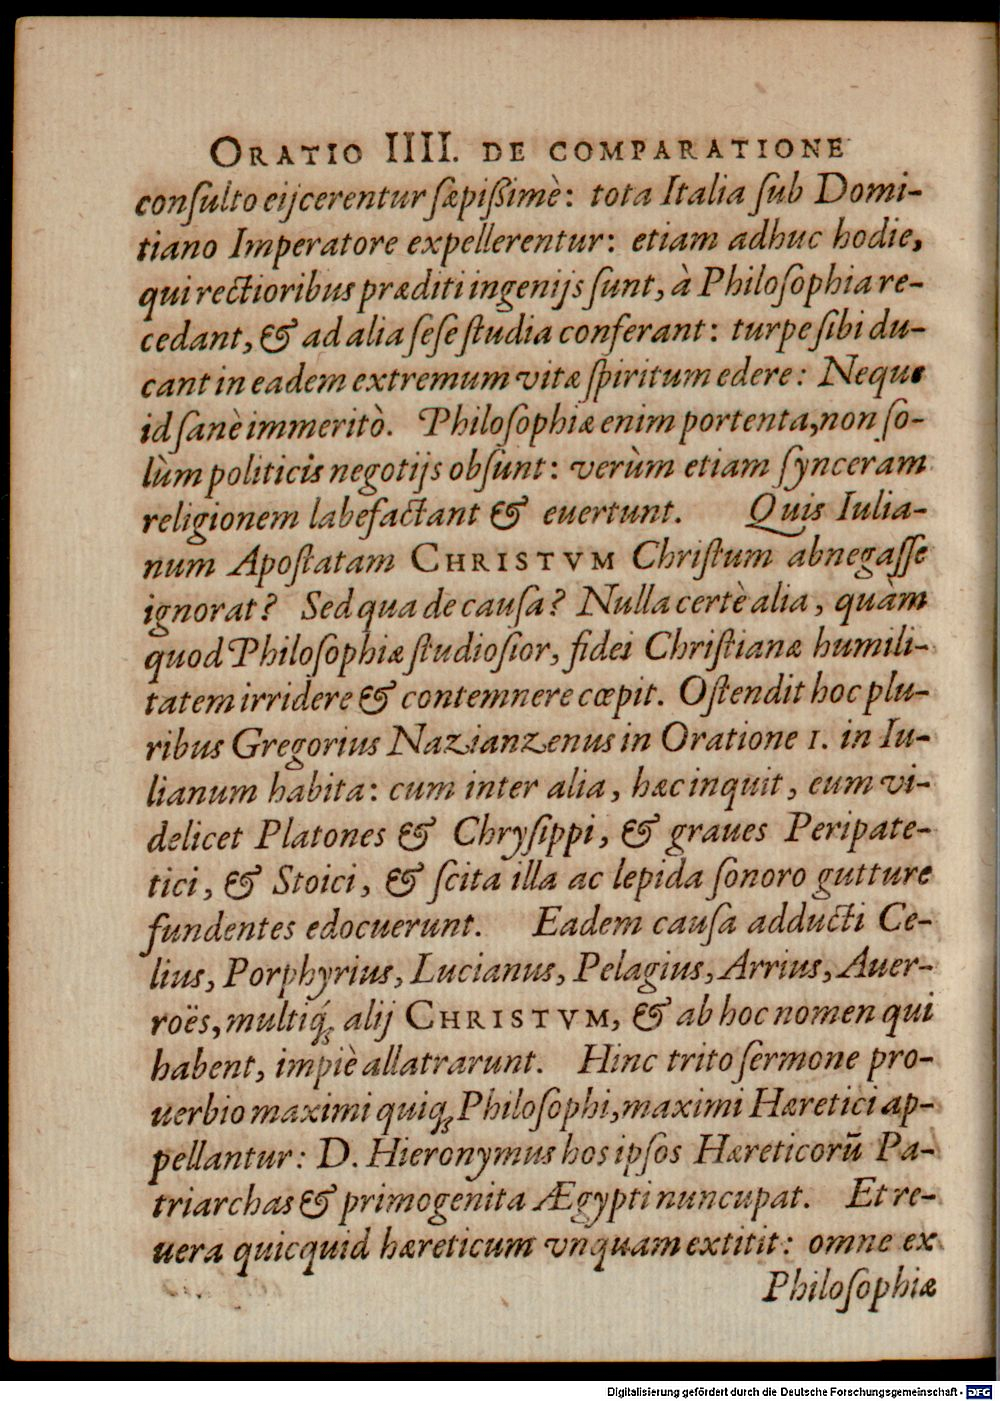 ORATIO IIII. DE COMPARATIONE
conſulto eijcerentur ſæpißimè: tota Italia ſub Domi-
tiano Imperatore expellerentur: etiam adhuc hodie,
qui rectioribus præditi ingenijs ſunt, à Philoſophia re-
cedant, & ad alia ſeſe ſtudia conferant: turpe ſibi du-
cant in eadem extremum vitæ ſpiritum edere: Neque
id ſanè immeritò. Philoſophiæ enim portenta, non ſo-
lùm politicis negotijs obſunt: verùm etiam ſynceram
religionem labefactant & euertunt. Quis Iulia-
num Apoſtatam CHRISTVM Chriſtum abnegaſſe
ignorat? Sed qua de cauſa? Nulla certè alia, quàm
quod Philoſophiæ ſtudioſior, fidei Chriſtianæ humili-
tatem irridere & contemnere cœpit. Oſtendit hoc plu-
ribus Gregorius Nazianzenus in Oratione 1. in Iu-
lianum habita: cum inter alia, hæc inquit, eum vi-
delicet Platones & Chryſippi, & graues Peripate-
tici, & Stoici, & ſcita illa ac lepida ſonoro gutture
fundentes edocuerunt. Eadem cauſa adducti Ce-
lius, Porphyrius, Lucianus, Pelagius, Arrius, Auer-
roës, multiq́ꝫ alij CHRISTVM, & ab hoc nomen qui
habent, impiè allatrarunt. Hinc trito ſermone pro-
uerbio maximi quiqꝫ Philoſophi, maximi Hæretici ap-
pellantur: D. Hieronymus hos ipſos Hæreticorū Pa-
triarchas & primogenita Ægypti nuncupat. Et re-
uera quicquid hæreticum vnquam extitit: omne ex
Philoſophiæ
Digitalisierung gefördert durch die Deutsche Forschungsgemeinschaft - DFG